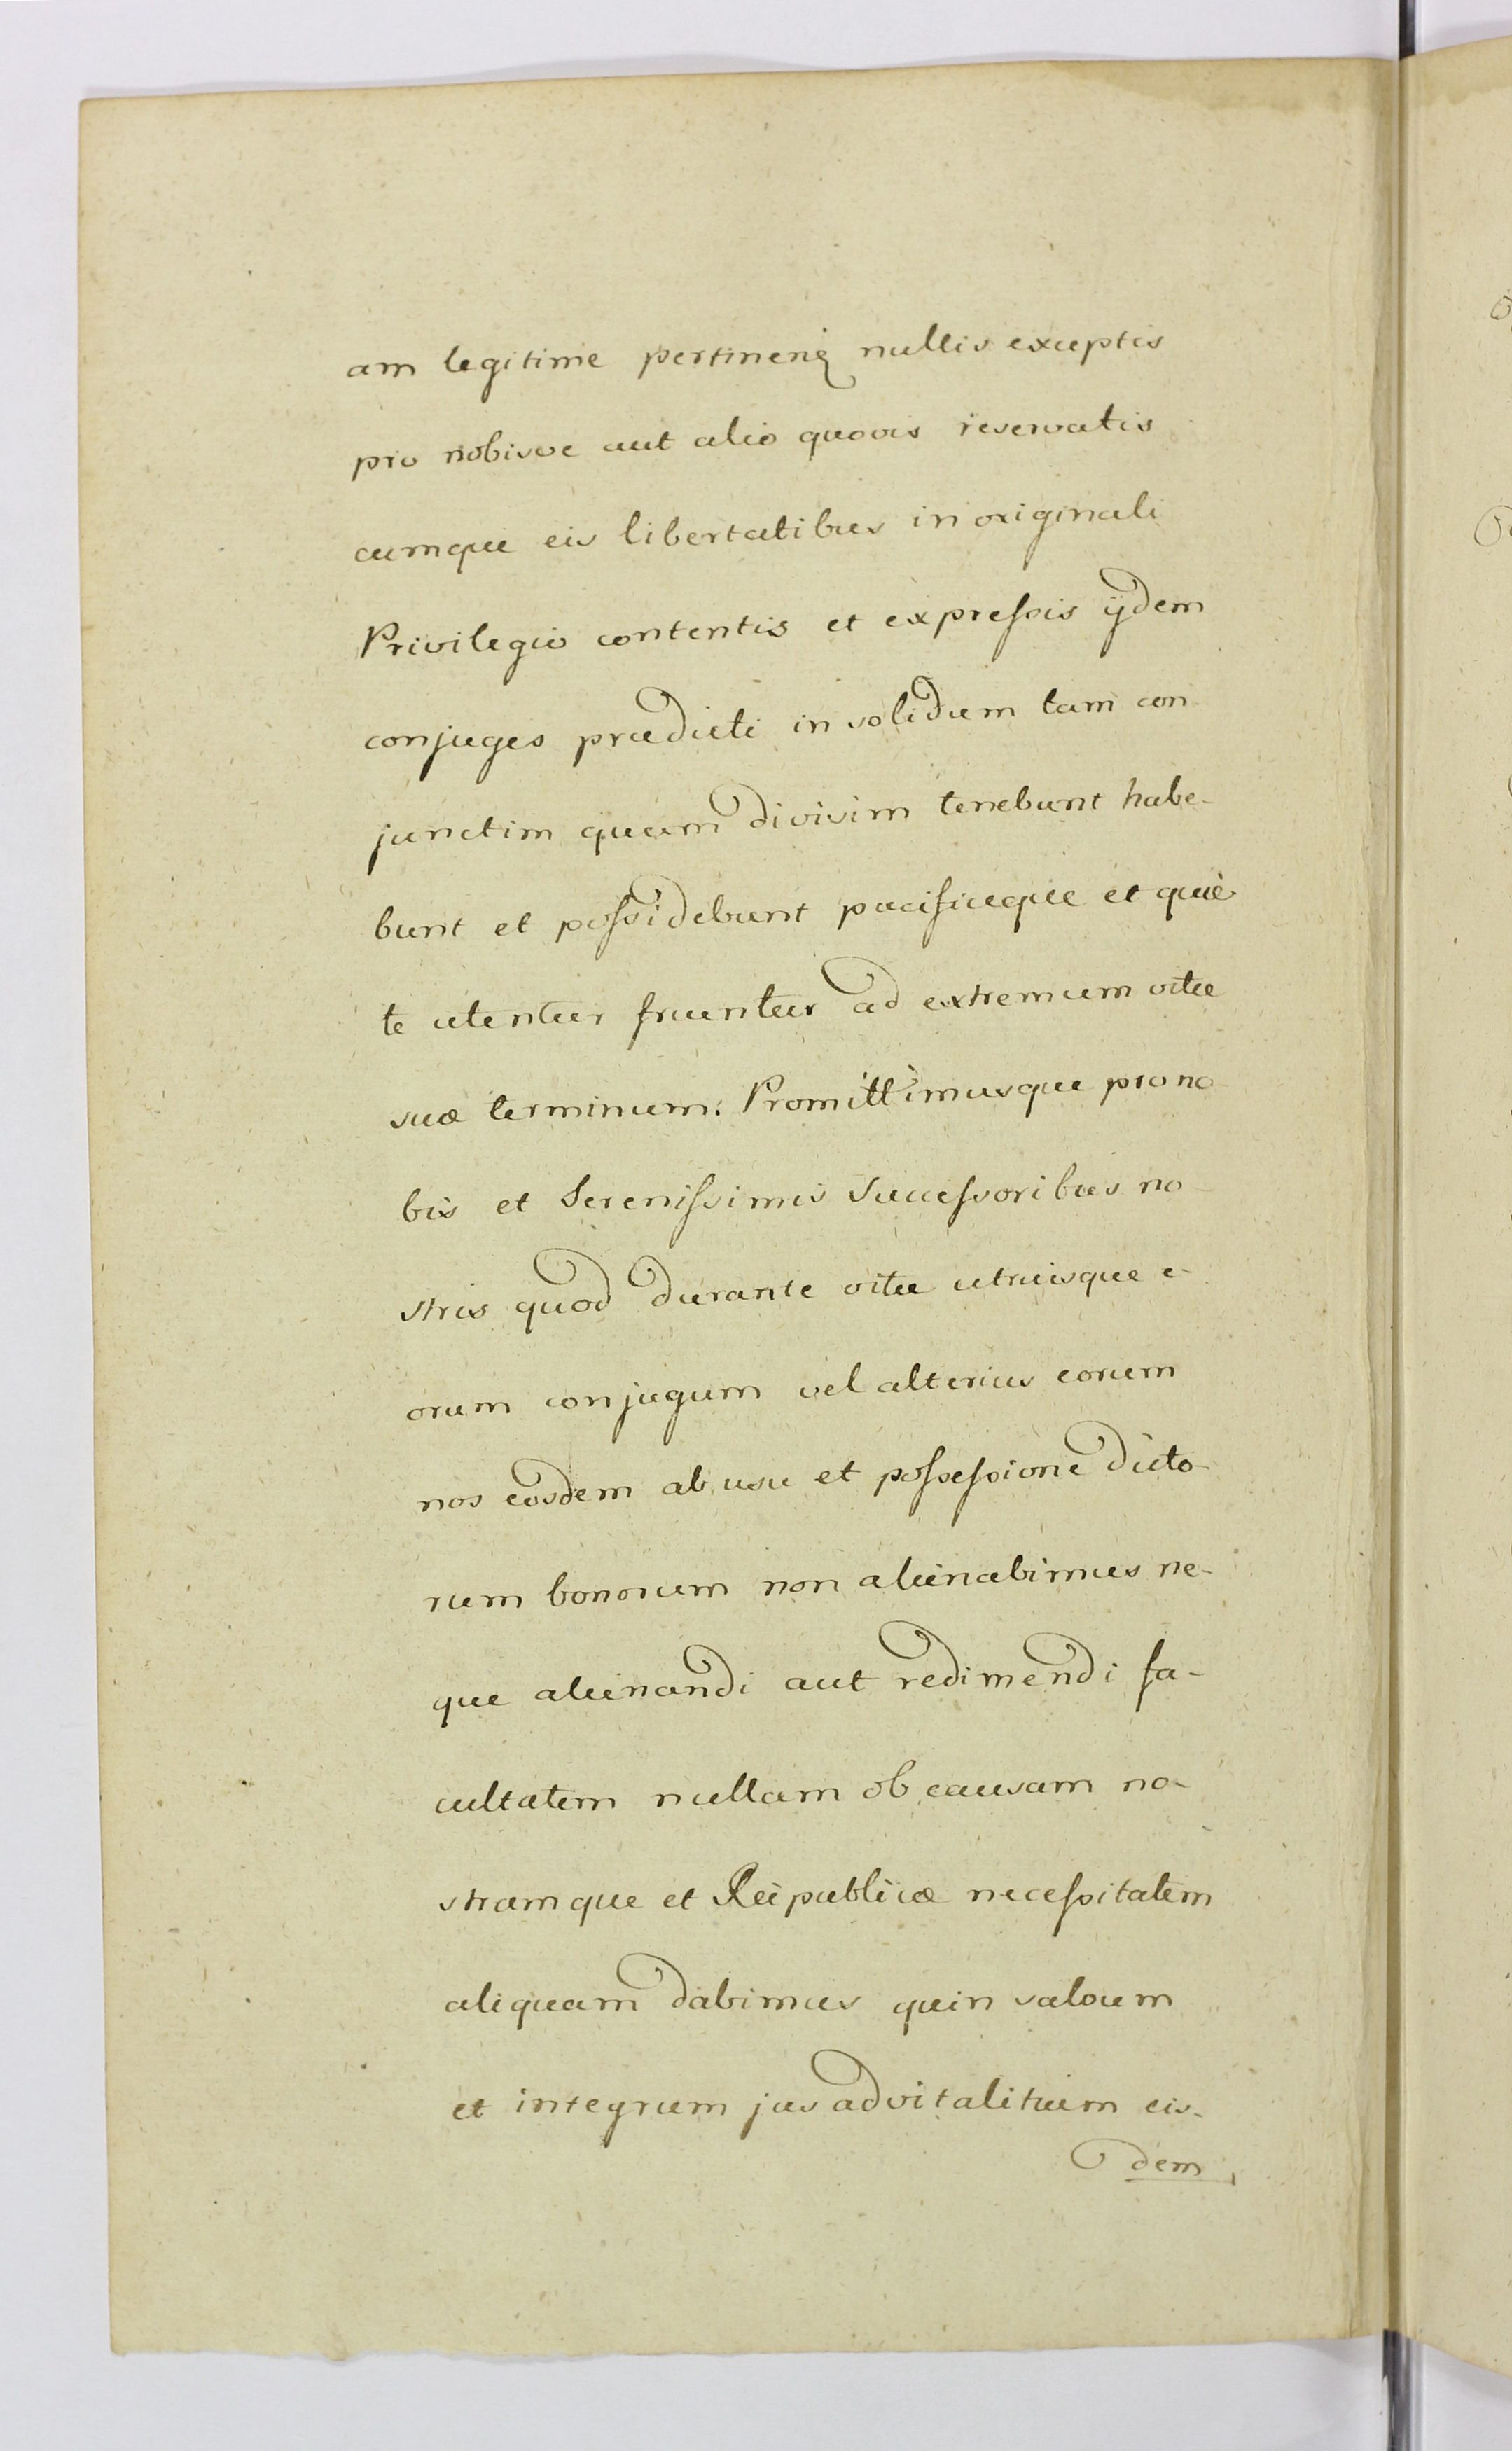 am legitime pertinen nullis exceptis
pro nobisve aut alio quovis reservatis
cumque eis libertatibus in originali
Privilegio contentis et expreſsis ijdem
conjuges prædicti in solidum tam con
junctim quam divisim tenebunt habe-
bunt et poſsidebunt pacificeque et quie
te utentur fruentur ad extremum vitæ
suæ terminum. Promittimusque pro no
bis et Sereniſsimis Succeſsoribus no-
stris quod durante vita utriusque e-
orum conjugum vel alterius eorum
nos eosdem ab usu et poſseſsione dicto-
rum bonorum non alienabimus ne-
que alienandi aut redimendi fa-
cultatem nullam ob causam no-
stramque et Reipublicæ neceſsitatem
aliquam dabimus quin salvum
et integrum jus advitalitium eis-
dem